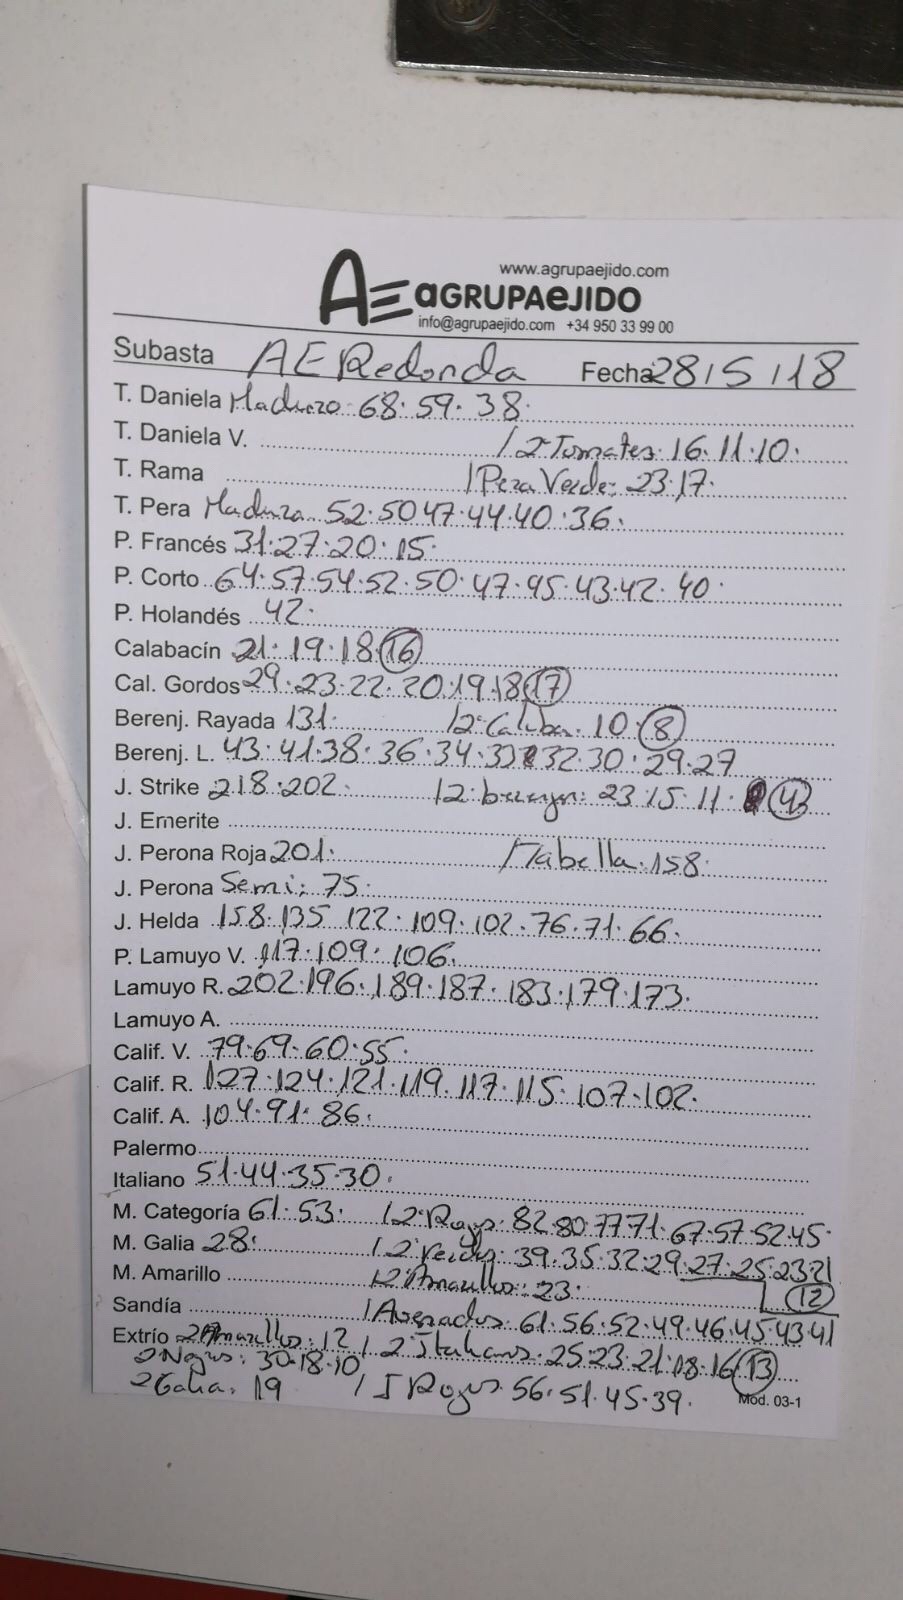 www.agrupaejido.com
AE aGRUPAeJIDO
info@agrupaejido.com +34 950 33 99 00
Subasta AE Redonda Fecha 28/5/18
T. Daniela Maduro 68.59.38.
T. Daniela V. /2ª Tomates. 16.11.10.
T. Rama /Pera Verde: 23.17.
T. Pera Madura 52.50 47.44.40.36.
P. Francés 31.27.20.15.
P. Corto 64.57.54.52.50.47.45.43.42.40.
P. Holandés 42.
Calabacín 21.19.18.16
Cal. Gordos 29.23.22.20.19.18.17
Berenj. Rayada 131. /2ª Calaba. 10.8
Berenj. L. 43.41.38.36.34.33 32.30.29.27
J. Strike 218.202. /2ª berenjen: 23.15.11.
J. Emerite
J. Perona Roja 201. /Tabella.158.
J. Perona Semi: 75.
J. Helda 158.135 122.109.102.76.71.66.
P. Lamuyo V. 117.109.106.
Lamuyo R. 202.196.189.187.183.179.173.
Lamuyo A.
Calif. V. 79.69.60.55.
Calif. R. 127.124.121.119.117.115.107.102.
Calif. A. 104.91.86.
Palermo
Italiano 51.44.35.30.
M. Categoría 61.53. /2ª Rojos: 82.80.77 71.67.57.52.45.
M. Galia 28. /2ª Verdes: 39.35.32.29.27.25.23.21
M. Amarillo /2ª Amarillos: 23. 12
Sandía /Asegrados: 61.56.52.49.46.45.43.41
Extrío 2ª Amarillos: 12 /2ª Italianos. 25.23.21.18.16 13
2ª Negros: 30.18.10
2ª Galia. 19 / I Rojos. 56.51.45.39.
Mod. 03-1